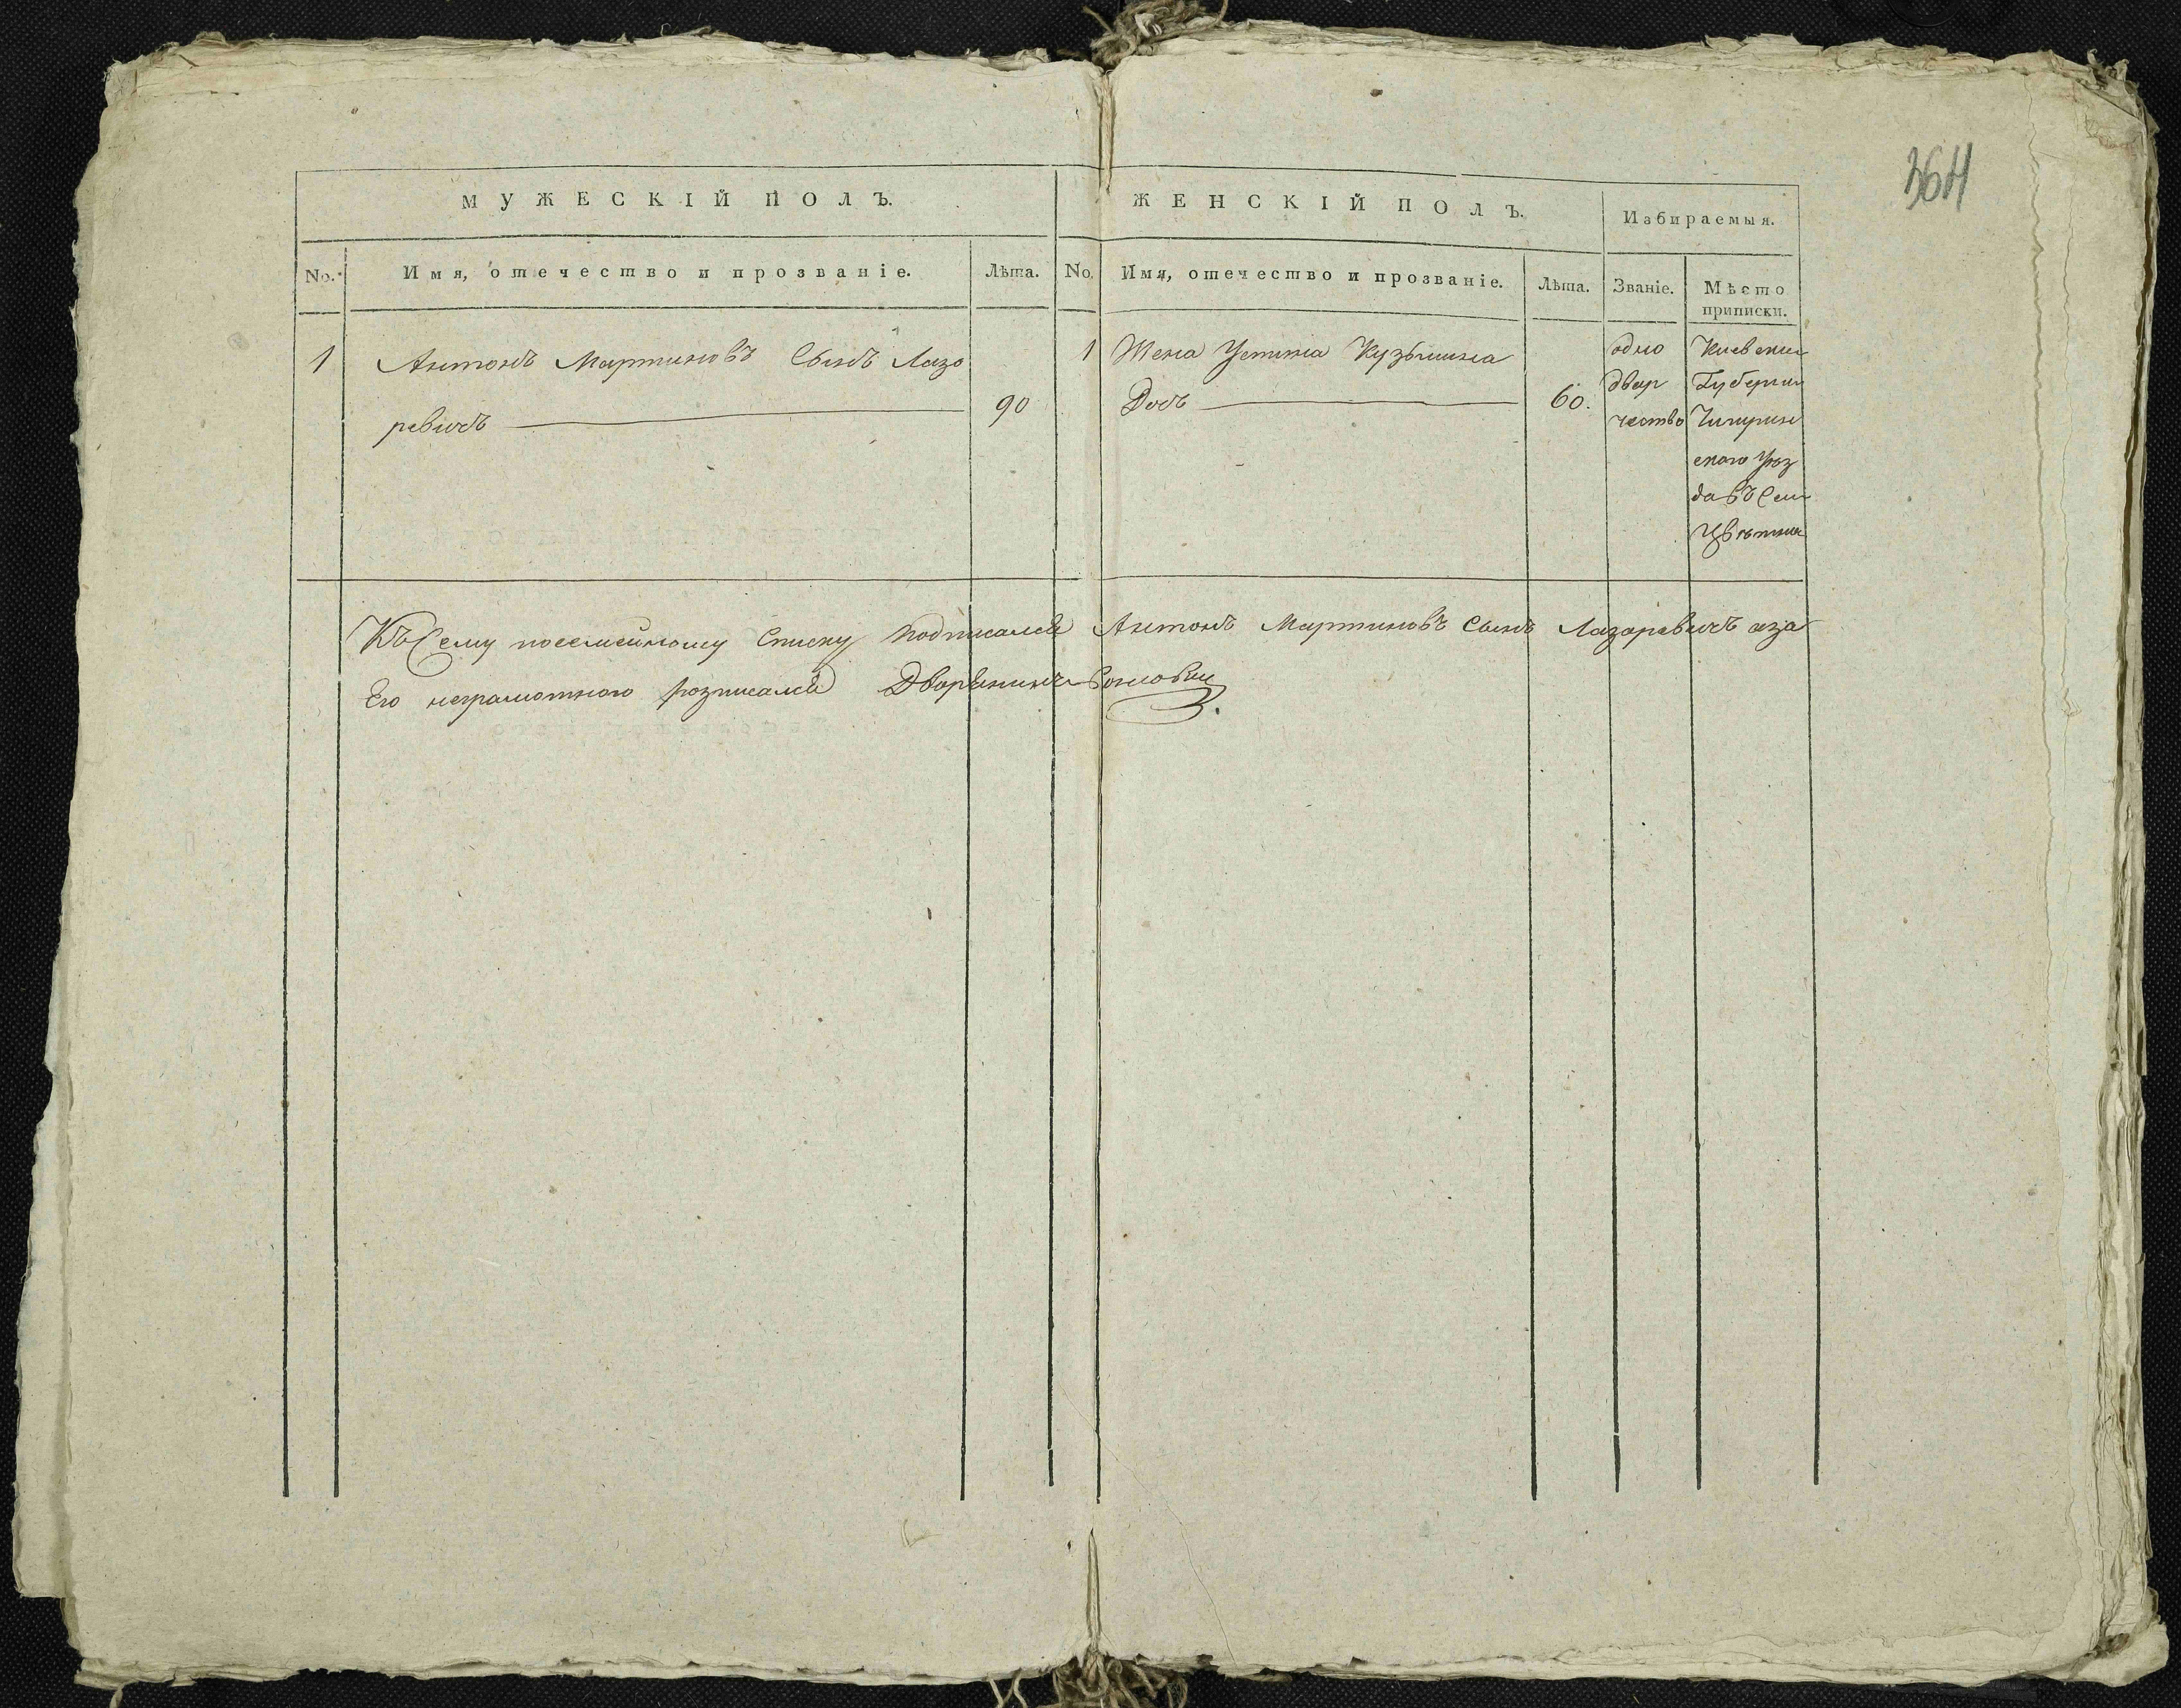 364
МУЖЕСКІЙ ПОЛЪ.
ЖЕНСКІЙ ПОЛЪ.
Избираемыя.
No.
Имя, отечество и прозваніе.
Лѣта.
No.
Имя, отечество и прозваніе.
Лѣта.
Званіе.
Мѣсто
приписки.
1
Антонъ Мартиновъ Сынъ Лазо
ревичъ
90
1
Жена Устина Кузьмина
Дочь
60.
одно
двор
чество
Киевской
Губернии
Чигирин
скаго Уѣз
да въ Селѣ
Цвѣтна
Къ Сему посемейному Списку подписался Антонъ Мартиновъ Сынъ Лазаревичъ аза
Его неграмотного розписался Дворянинъ